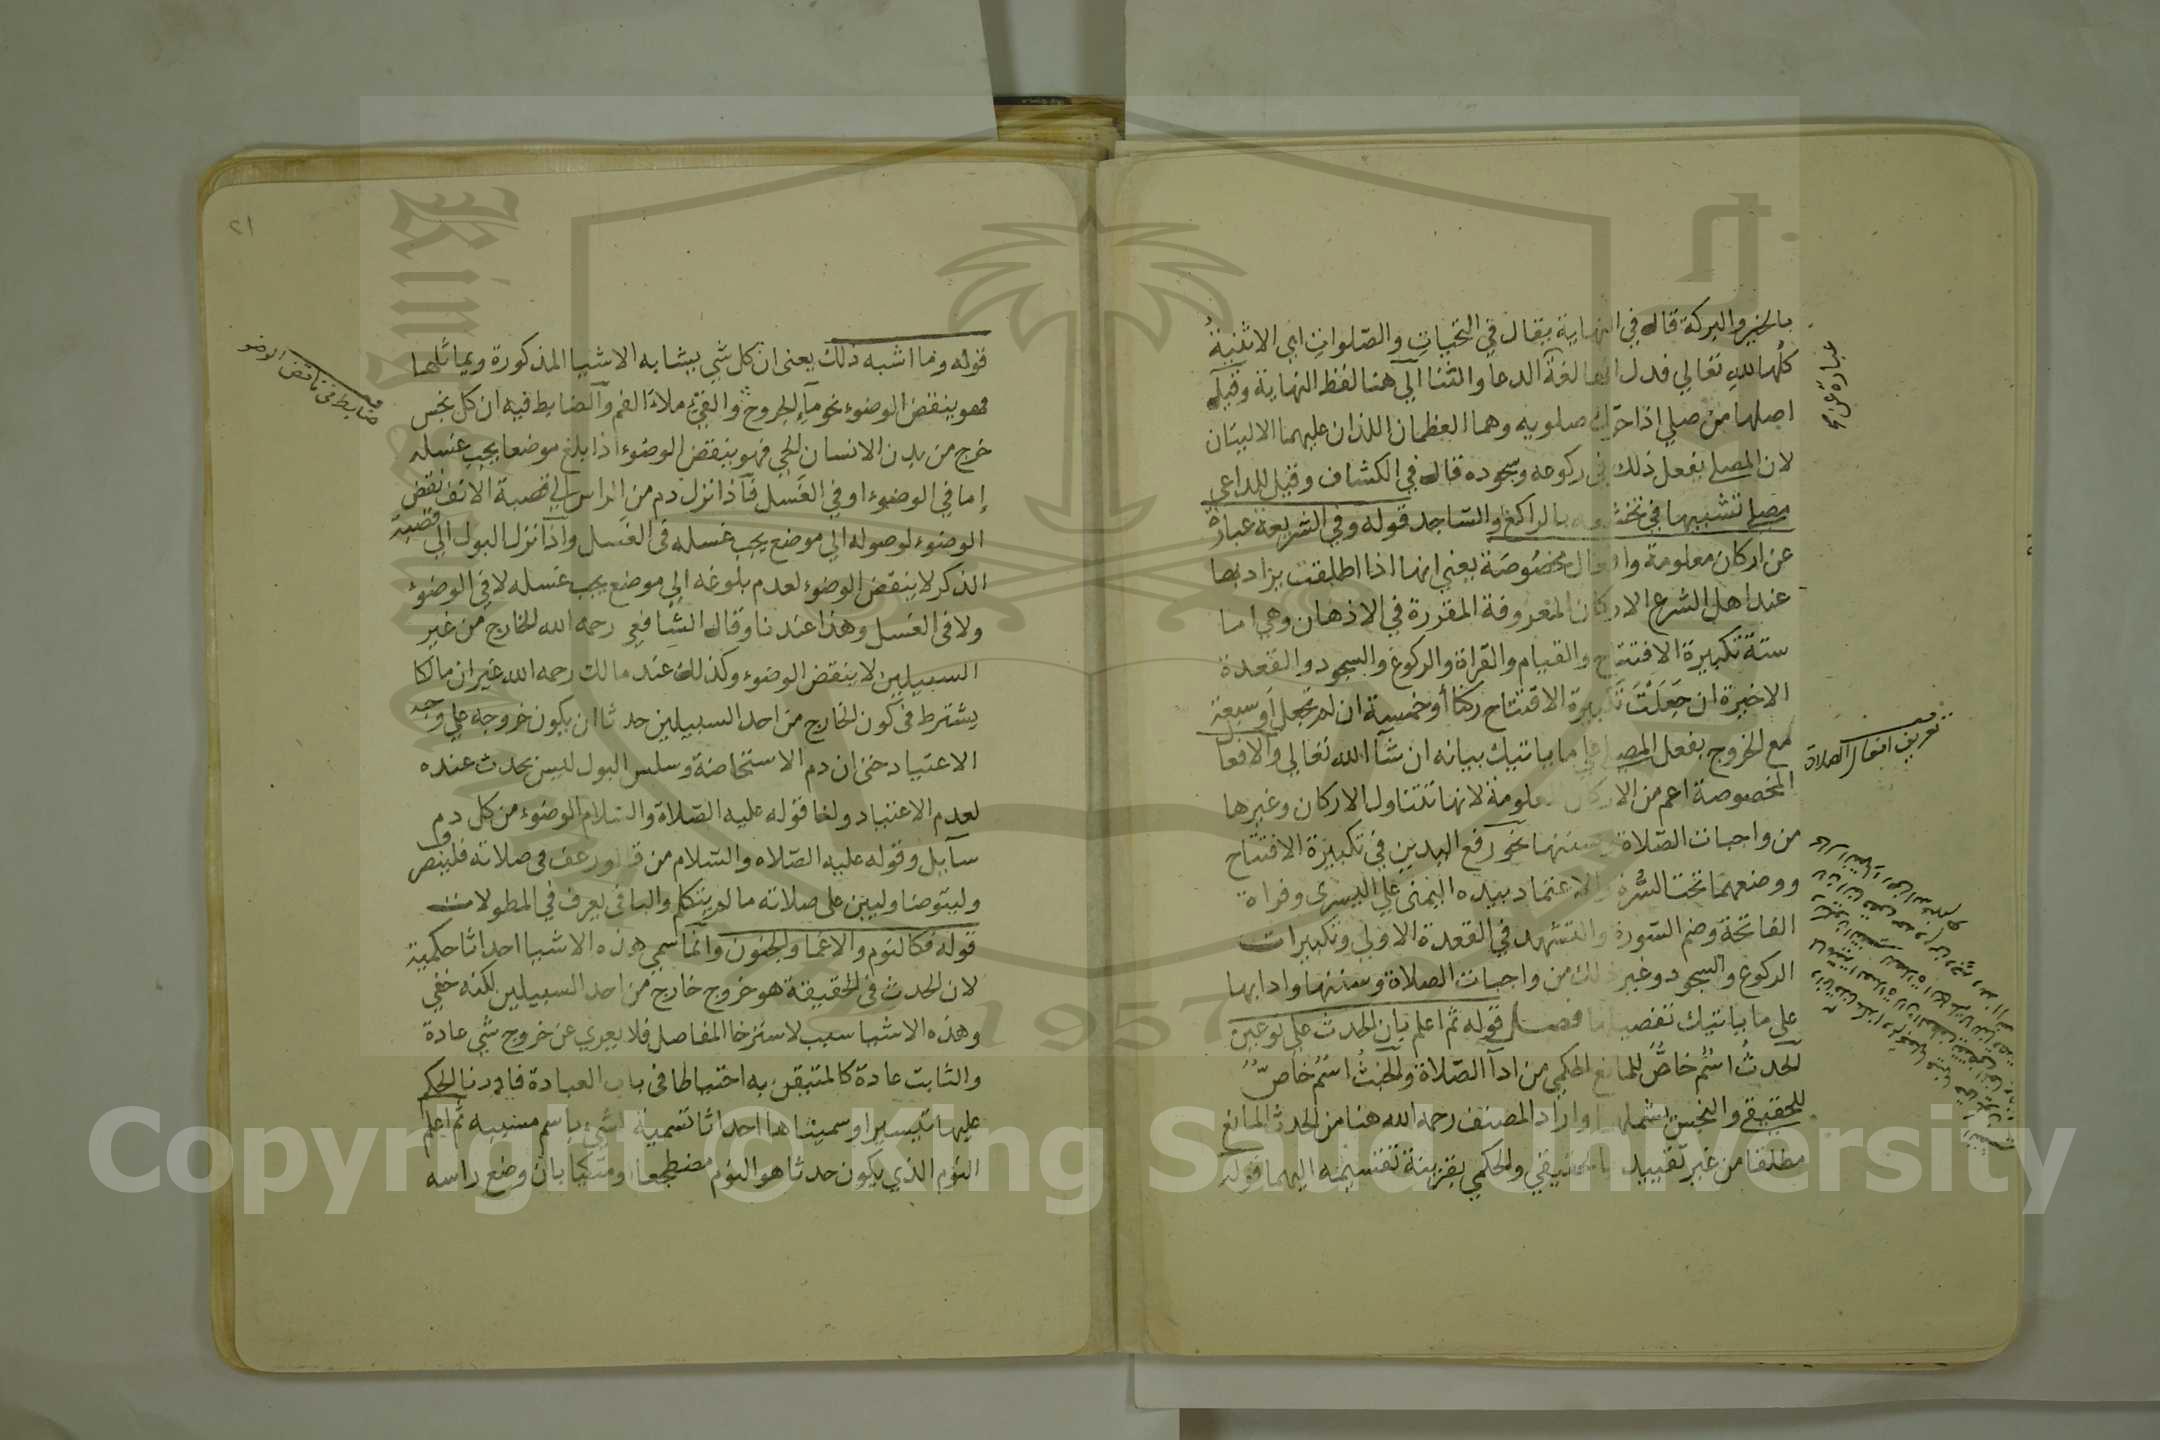 بالخير والبركة قاله في النهاية يقال في التحيات والصلوات اي الاثنية
كلها لله تعالي فدل الدعا والثنا الي هنا لفظ النهاية وقيل
اصلها من صلي اذا حرك صلويه وهما العظمان اللذان عليهما الاليتان
لان المصلي يفعل ذلك في ركوعه وسجوده قاله في الكشاف وقيل للداعي
مصلي تشبيها في تخشعه بالراكع والساجد قوله وفي الشريعة عبارة
عن اركان معلومة وافعال مخصُوصَة يعني انها اذا اطلقت يراد بها
عند اهل الشرع الاركان المعروفة المقررة في الاذهان وهي اما
ستة تكبيرة الافتتاح والقيام والقراة والركوع والسجود والقعدة
الاخيرة ان جَعَلْتَ تكبيرة الافتتاح ركنا أو خمسة ان لم تجعل أو سبعة
مع الخروج بفعل المصلي علي ما ياتيك بيانه ان شآ الله تعالي والافعا
المخصوصة اعم من الاركان المعلومة لانها تتناول الاركان وغيرها
من واجبات الصّلاة وسننها نحو رفع اليدين في تكبيرة الافتتاح
ووضعهما تحت السُّرة والاعتماد بيده اليمنى علي اليسرى وقراة
الفاتحة وضم السّورة والتشهد في القعدة الاولي وتكبيرات
الركوع والسجود وغير ذلك من واجبات الصلاة وسننها وادابها
علي ما ياتيك تفصيلنا فصل قوله ثم اعلم بان الحدث علي نوعين
الحدثُ اسْمٌ خاصٌّ للمانع الحكمي من ادآ الصّلاة والخبثُ اسْمٌ خاصٌّ
للحقيقي والنجس يشملهما واراد المصنف رحمه الله هنا من الحدث المانع
مطلقا من غير تقييد بالحقيقي والحكمي بقرينة تقسيمه اليهما قوله
عبارة عزمي
تعريف افعال الصلاة
٢١
قوله وما اشبه ذلك يعنى ان كل شي يشابه الاشيا المذكورة ويماثلها
فهو ينقض الوضوء نحو مآء الجروح والقيء ملاء الفم والضابط فيه ان كل نجس
خرج من بدن الانسان الحي فهو ينقض الوضوء اذا بلغ موضعا يجب غسله
إما في الوضوء او في الغسل فاذا نزل دم من الراس الي قصبة الانف نقض
الوضوء لوصوله الي موضع يجب غسله فى الغسل واذا نزل البول الي قصبة
الذكر لا ينقض الوضوء لعدم بلوغه الي موضع يجب غسله لا في الوضوء
ولا فى الغسل وهذا عندنا وقال الشافعي رحمه الله الخارج من غير
السبيلين لا ينقض الوضوء وكذلك عند مالك رحمه الله غير ان مالكا
يشترط فى كون الخارج من احد السبيلين حدثا ان يكون خروجه علي وجه
الاعتياد حتى ان دم الاستحاضة وسلس البول ليس بحدث عنده
لعدم الاعتياد ولنا قوله عليه الصّلاة والسّلام الوضوء من كل دم
سآيل وقوله عليه الصّلاه والسّلام من قاء او رعف فى صلاته فلينصرف
وليتوضا وليبن علي صلاته ما لم يتكلم والباقى يعرف في المطولات
قوله فكالنوم والاغما والجنون وانما سمي هذه الاشيا احداثا حكمية
لان الحدث فى الحقيقة هو خروج خارج من احد السبيلين لكنه خفي
وهذه الاشيا سبب لاسترخا المفاصل فلا يعري عن خروج شي عادة
والثابت عادة كالمتيقن به احتياطا فى باب العبادة فادرنا الحكم
عليها تيسيرا وسميناها احداثا تسمية لشيء باسم مسببه ثم اعلم
النوم الذي يكون حدثا هو النوم مضطجعا او متكيا بان وضع راسه
ضابط فى نآقض الوضو
Copyright © King Saud University
King Saud
1957